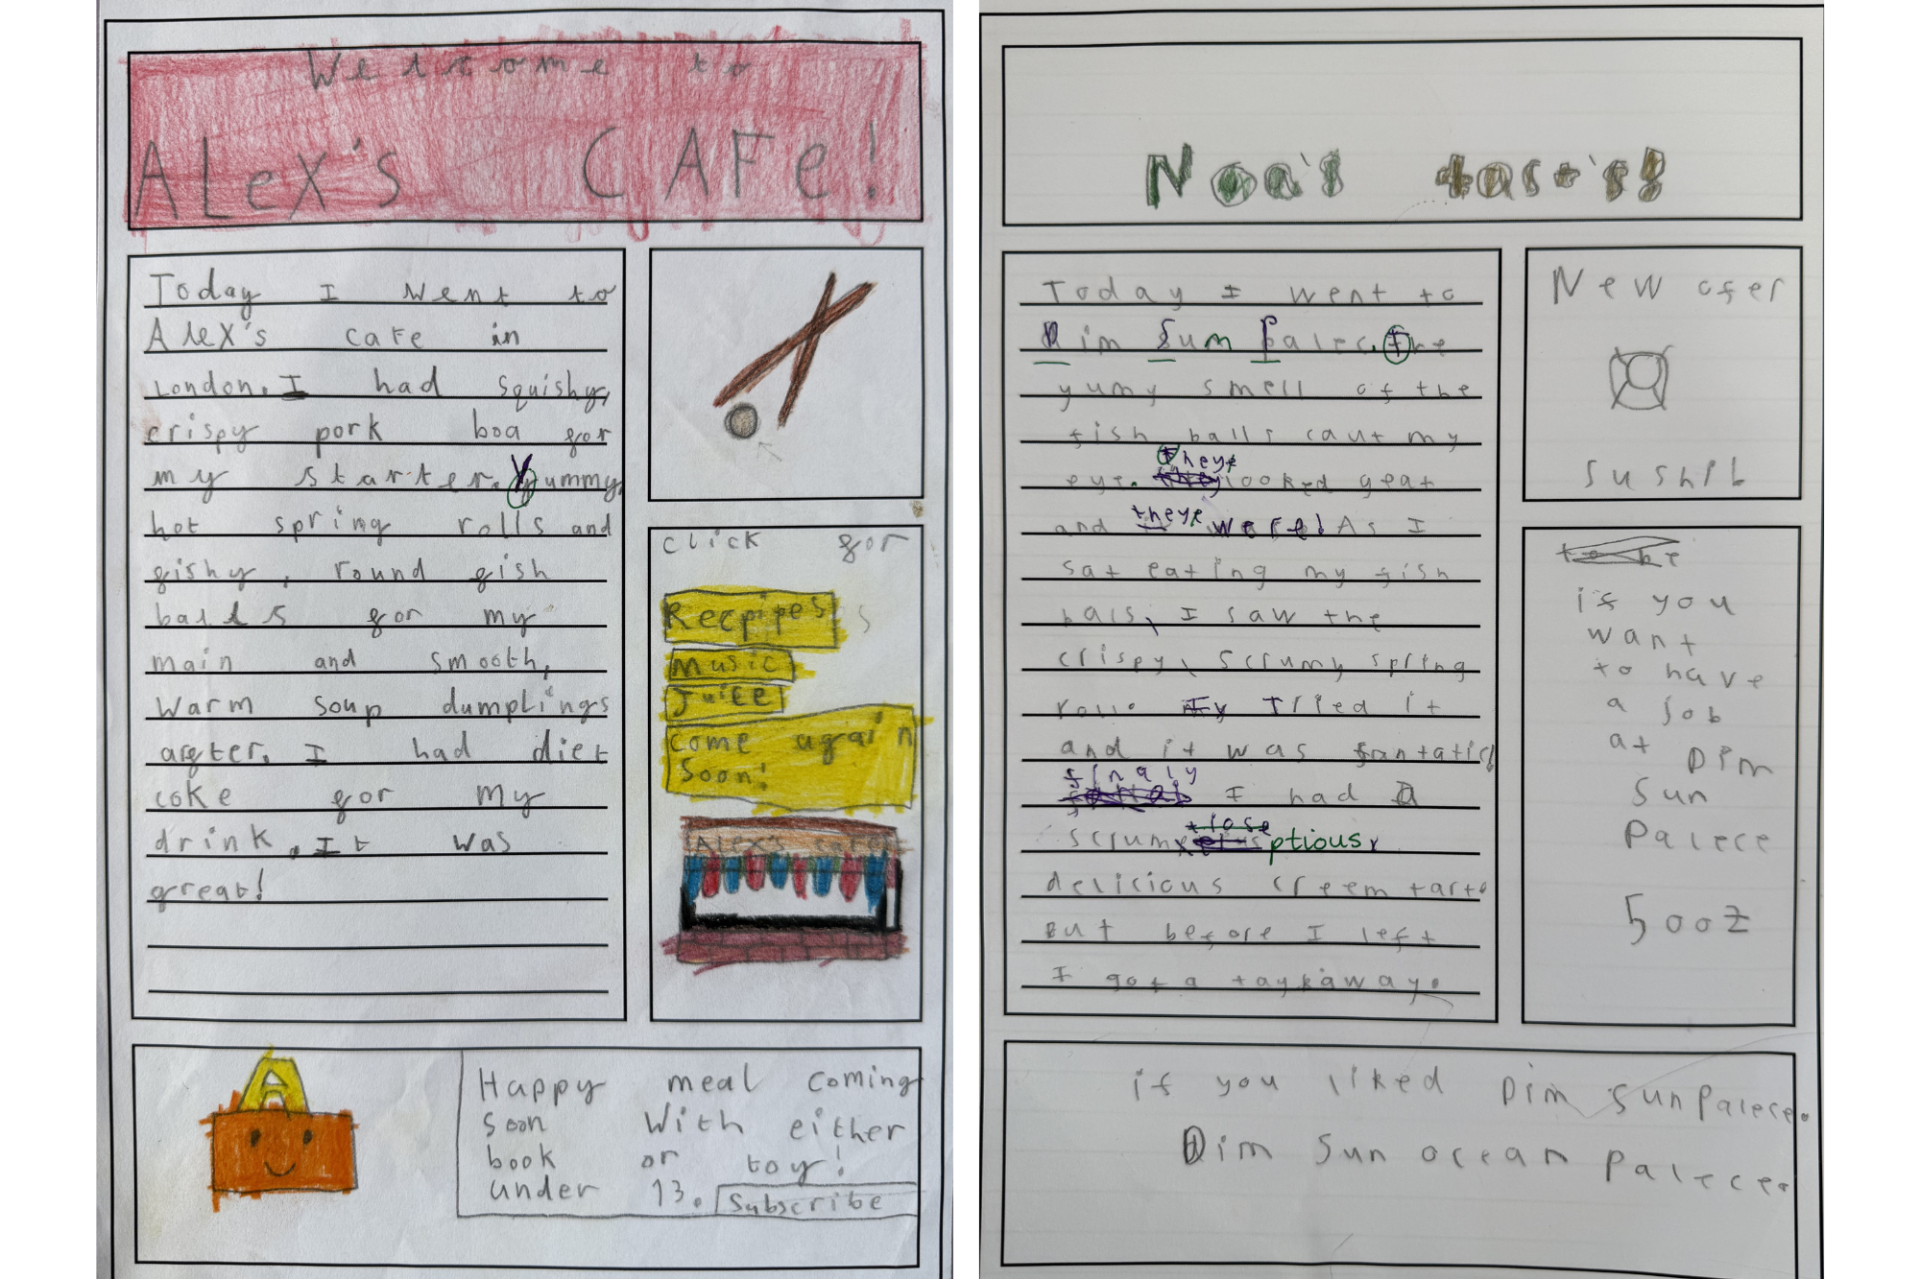 Welcome to
ALeX's CAFe!
Today I went to
Alex's cafe in
London. I had squishy,
crispy pork boa for
my starter. Yummy,
hot spring rolls and
fishy, round fish
balls for my
main and smooth,
warm soup dumplings
after. I had diet
coke for my
drink. It was
great!
click for
Recpipes s
Music
Juice
Come again
Soon!
Alex's cafe
A
Happy meal coming
soon with either
book or toy!
under 13. Subscribe
Noa's tast's!
Today I went to
Dim Sum Palec. The
yumy smell of the
fish balls caut my
eye. they looked geat
and they were! As I
sat eating my fish
bals, I saw the
crispy, scrumy spring
roll. I Tried it
and it was fantatic!
finaly I had a
scrumptious,
delicious creem tart.
But before I left
I got a taykaway.
New ofer
sushib
if you
want
to have
a job
at Dim
Sun
Palece
500z
if you liked Dim Sun Palece.
Dim Sun ocean Palece.